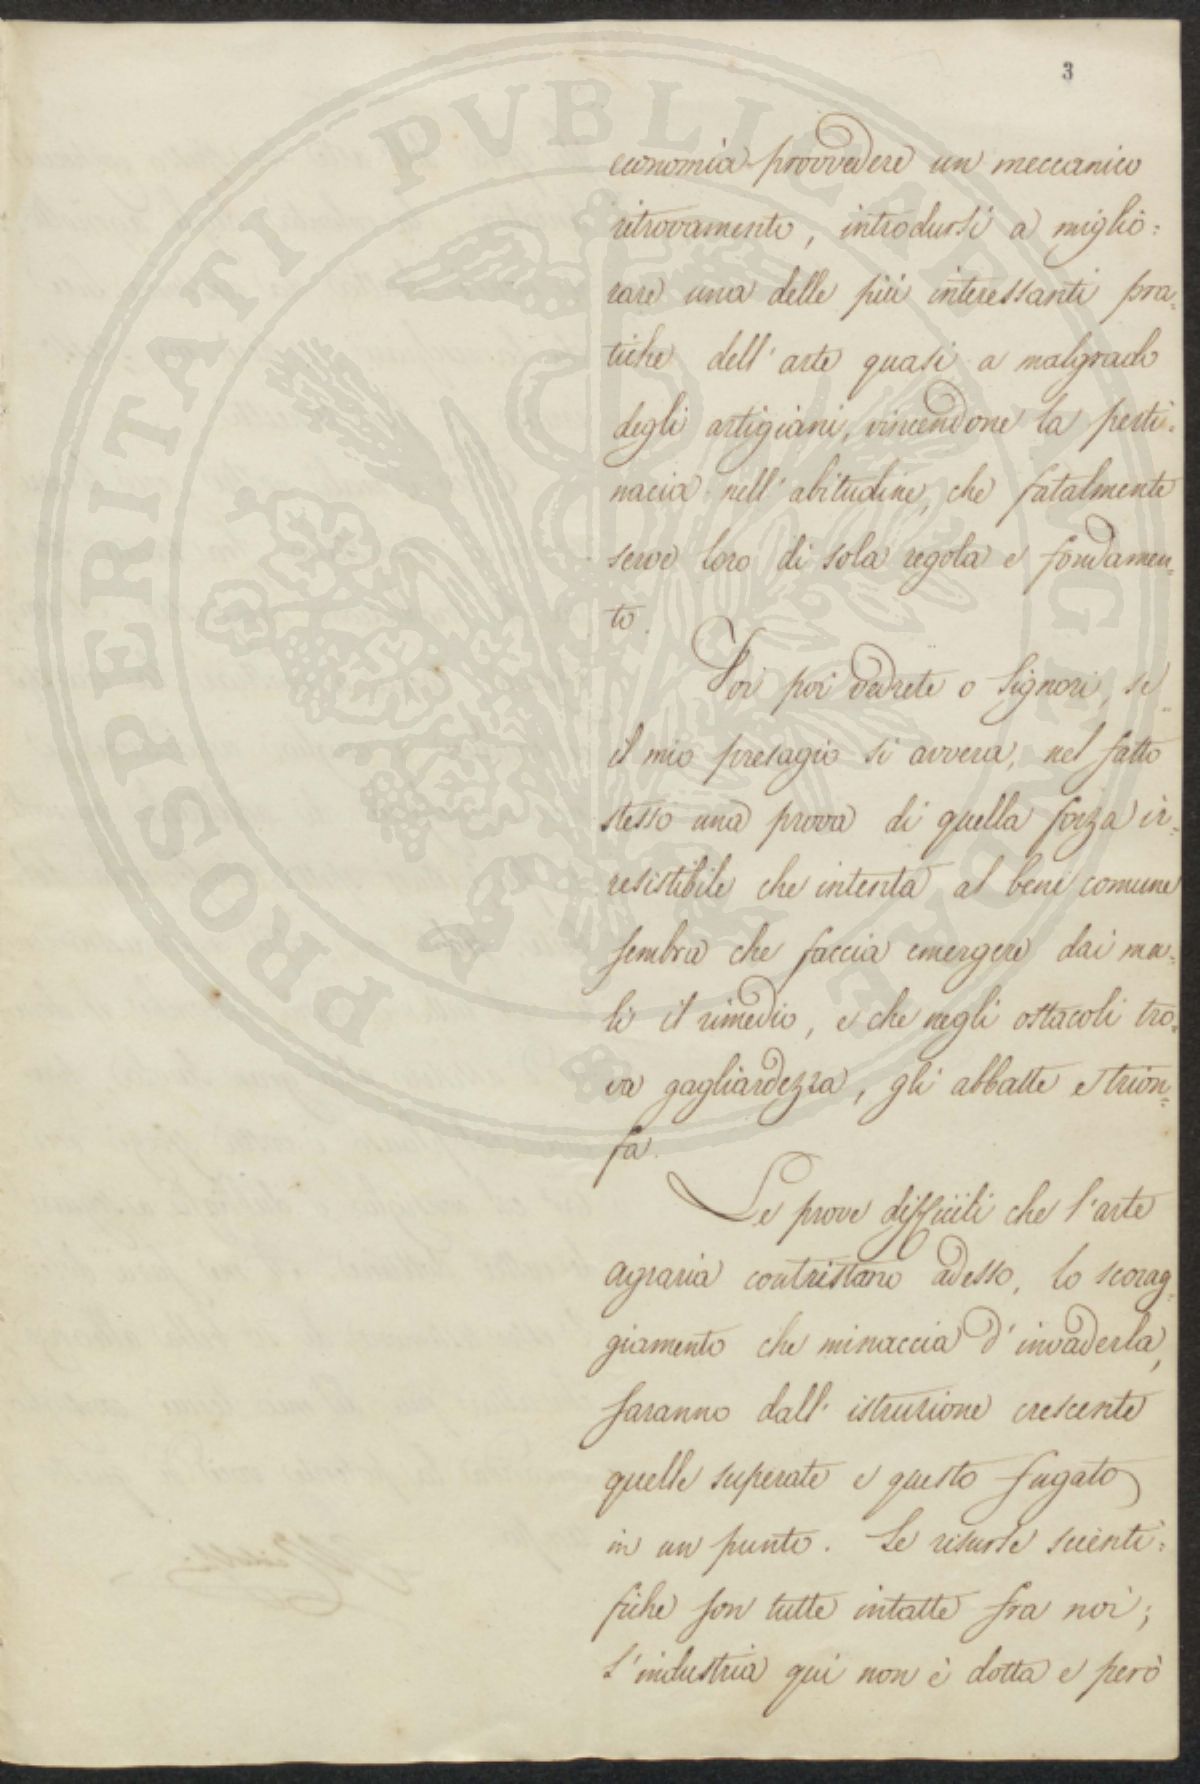 3
economia provvedere un meccanico
ritrovamento, introdursi a miglio:
rare una delle più interessanti pra=
tiche dell'arte quasi a malgrado
degli artigiani, vincendone la perti=
nacia nell'abitudine, che fatalmente
serve loro di sola regola e fondamen=
to.
Voi poi vedrete o Signori, se
il mio presagio si avvera, nel fatto
stesso una prova di quella forza ir=
resistibile che intenta al bene comune
sembra che faccia emergere dai ma=
li il rimedio, e che negli ostacoli tro=
va gagliardezza, gli abbatte e trion=
fa.
Le prove difficili che l'arte
agraria contristano adesso, lo scorag=
giamento che minaccia d'invaderla,
saranno dall'istruzione crescente
quelle superate e questo fugato
in un punto. Le risorse scienti=
fiche son tutte intatte fra noi;
l'industria qui non è dotta e però
PROSPERITATI PVBLICAE AVGENDAE